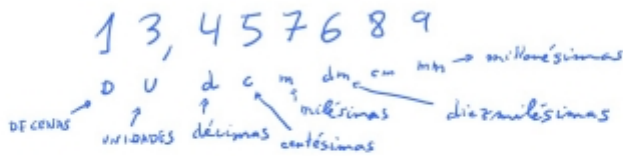 13,457689
D U d c m dm cm mm → millonésimas
DECENAS UNIDADES décimas centésimas milésimas diezmilésimas